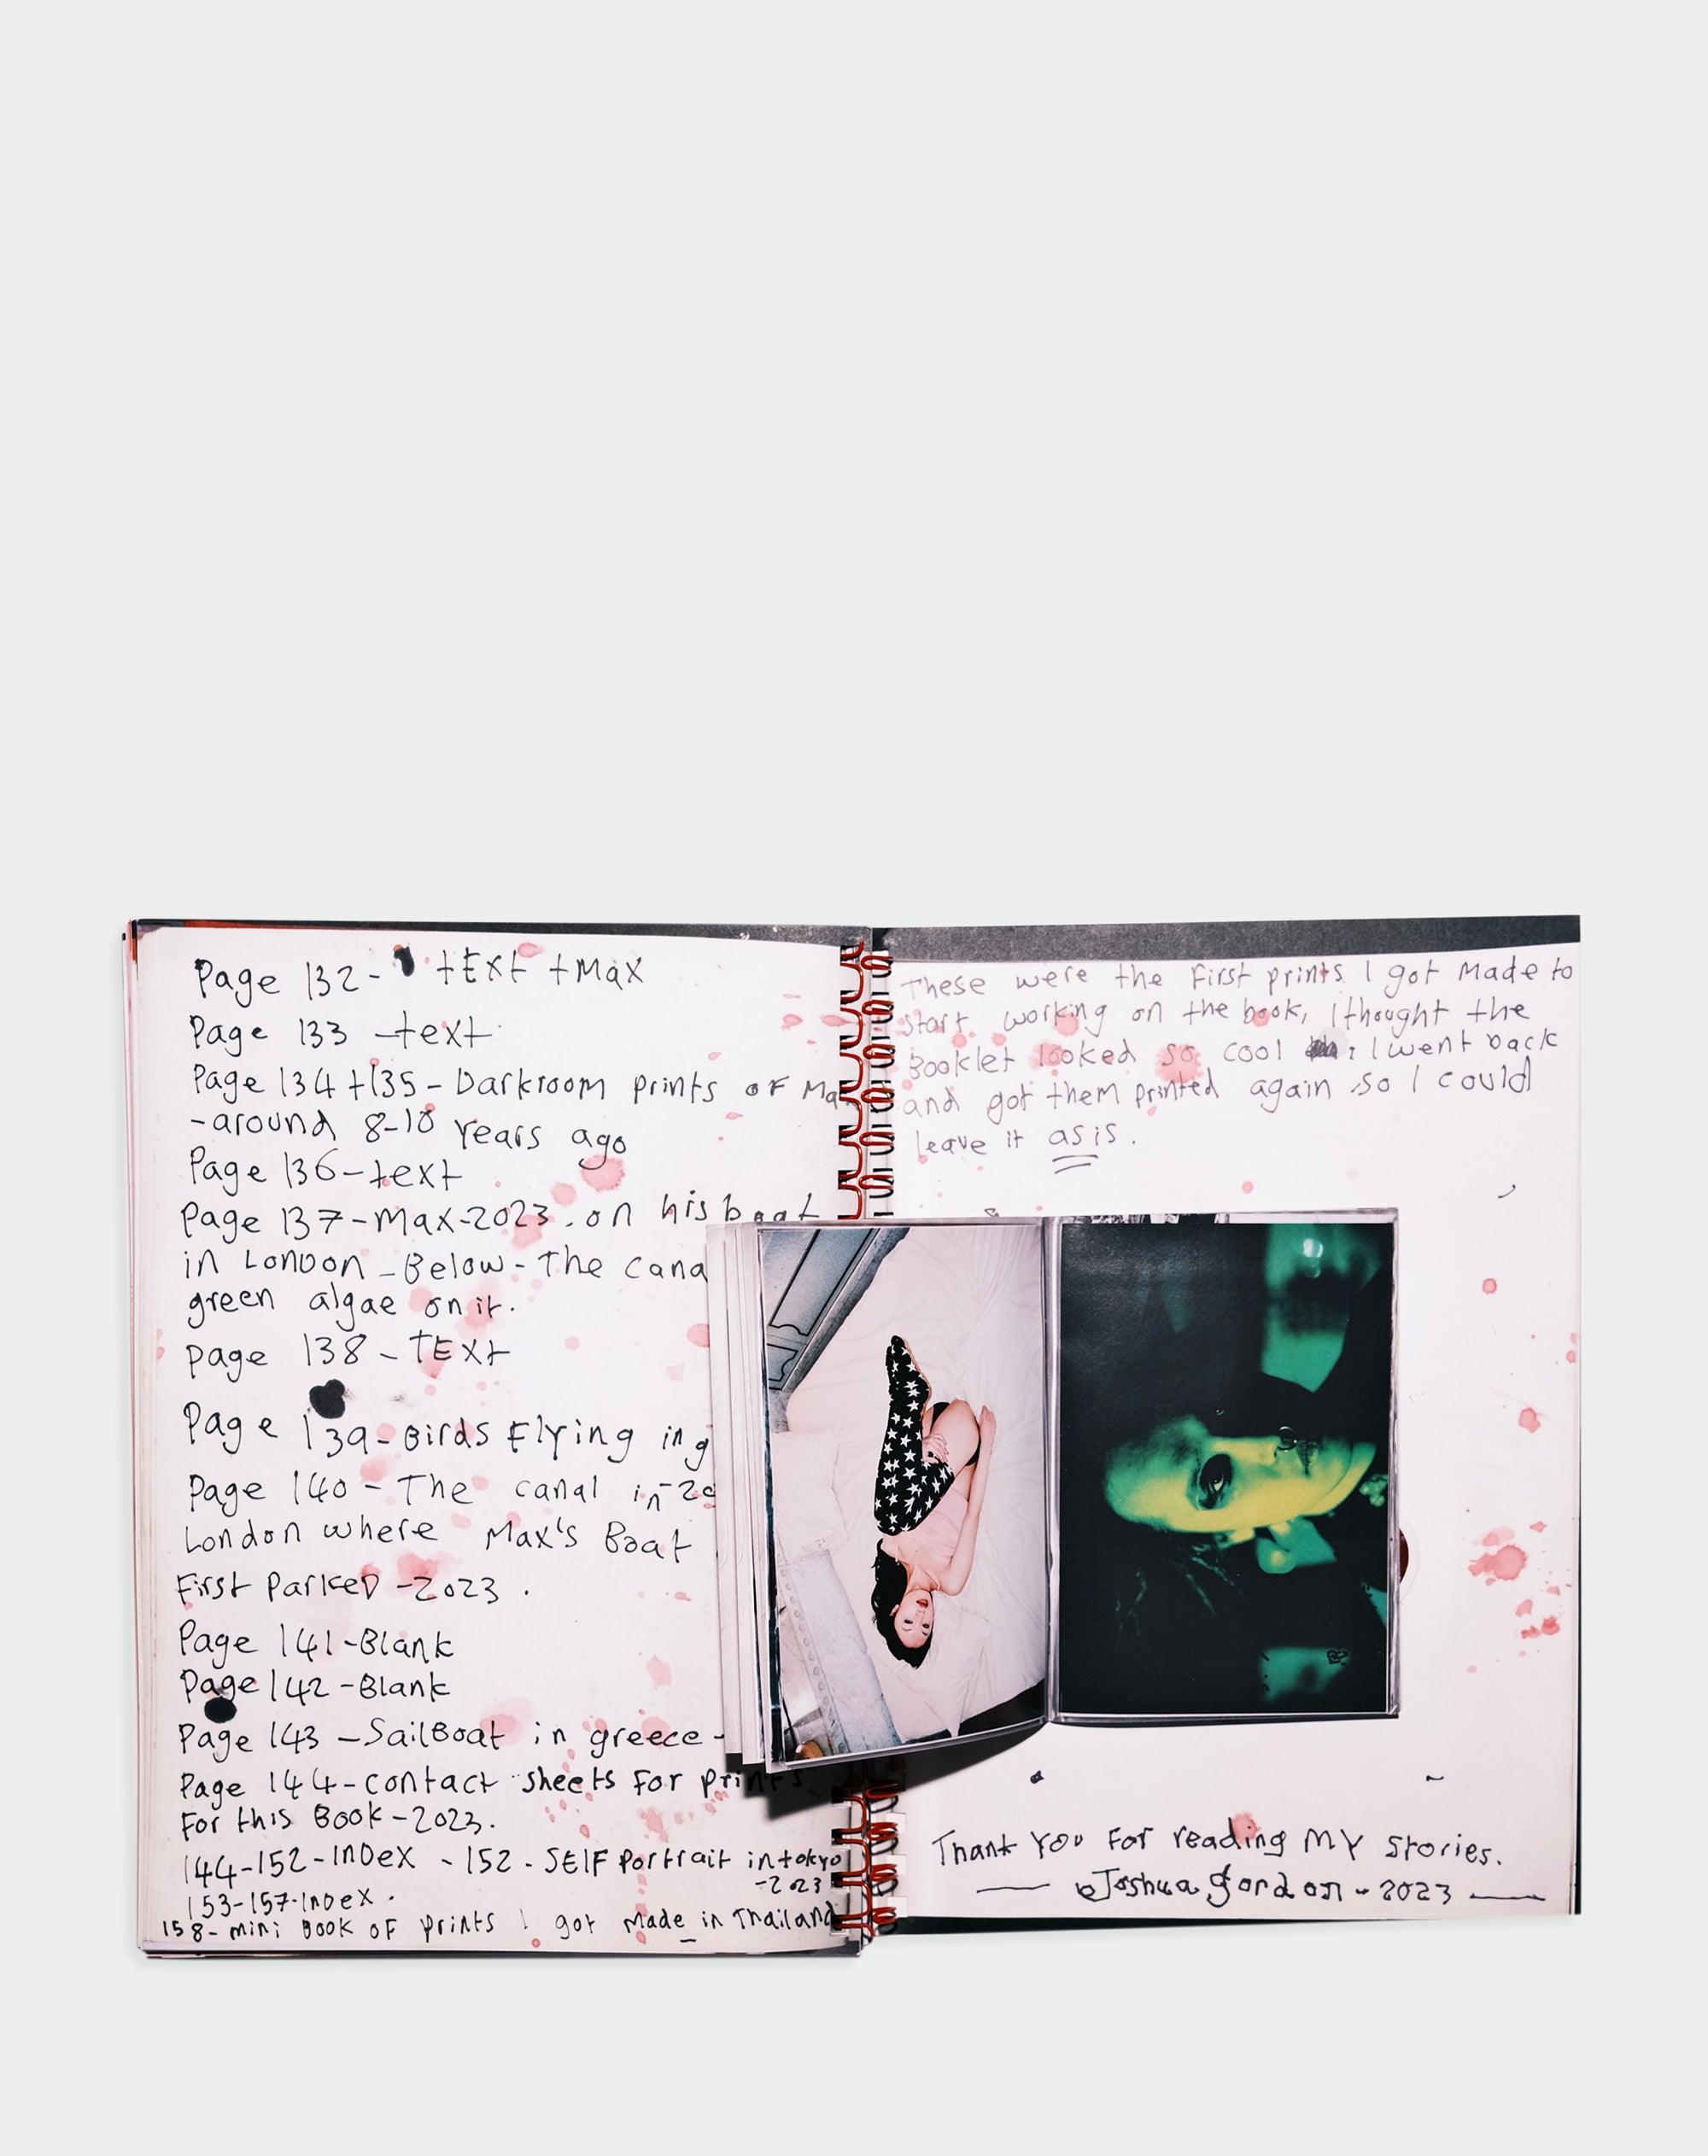 Page 132- tEXt +Max
Page 133 -text
Page 134+135- Darkroom prints of Ma
-around 8-10 years ago
Page 136-text
Page 137-Max-2023. on his boat
in London - Below- The cana
green algae on it.
page 138 - TEXt
Page 139- Birds Flying in g
Page 140 - The canal in
London where Max's Boat
First Parked -2023.
Page 141-Blank
Page 142 -Blank
Page 143 -SailBoat in greece-
Page 144-contact sheets for prints
For this Book-2023.
144-152-Index - 152 - Self Portrait in tokyo
-2023
153-157-Index.
158- mini Book of prints I got Made in Thailand
These were the First prints I got Made to
start working on the book, I thought the
Booklet looked so cool I went back
and got them printed again so I could
leave it as is.
Thank You For reading MY stories.
Joshua gordon - 2023